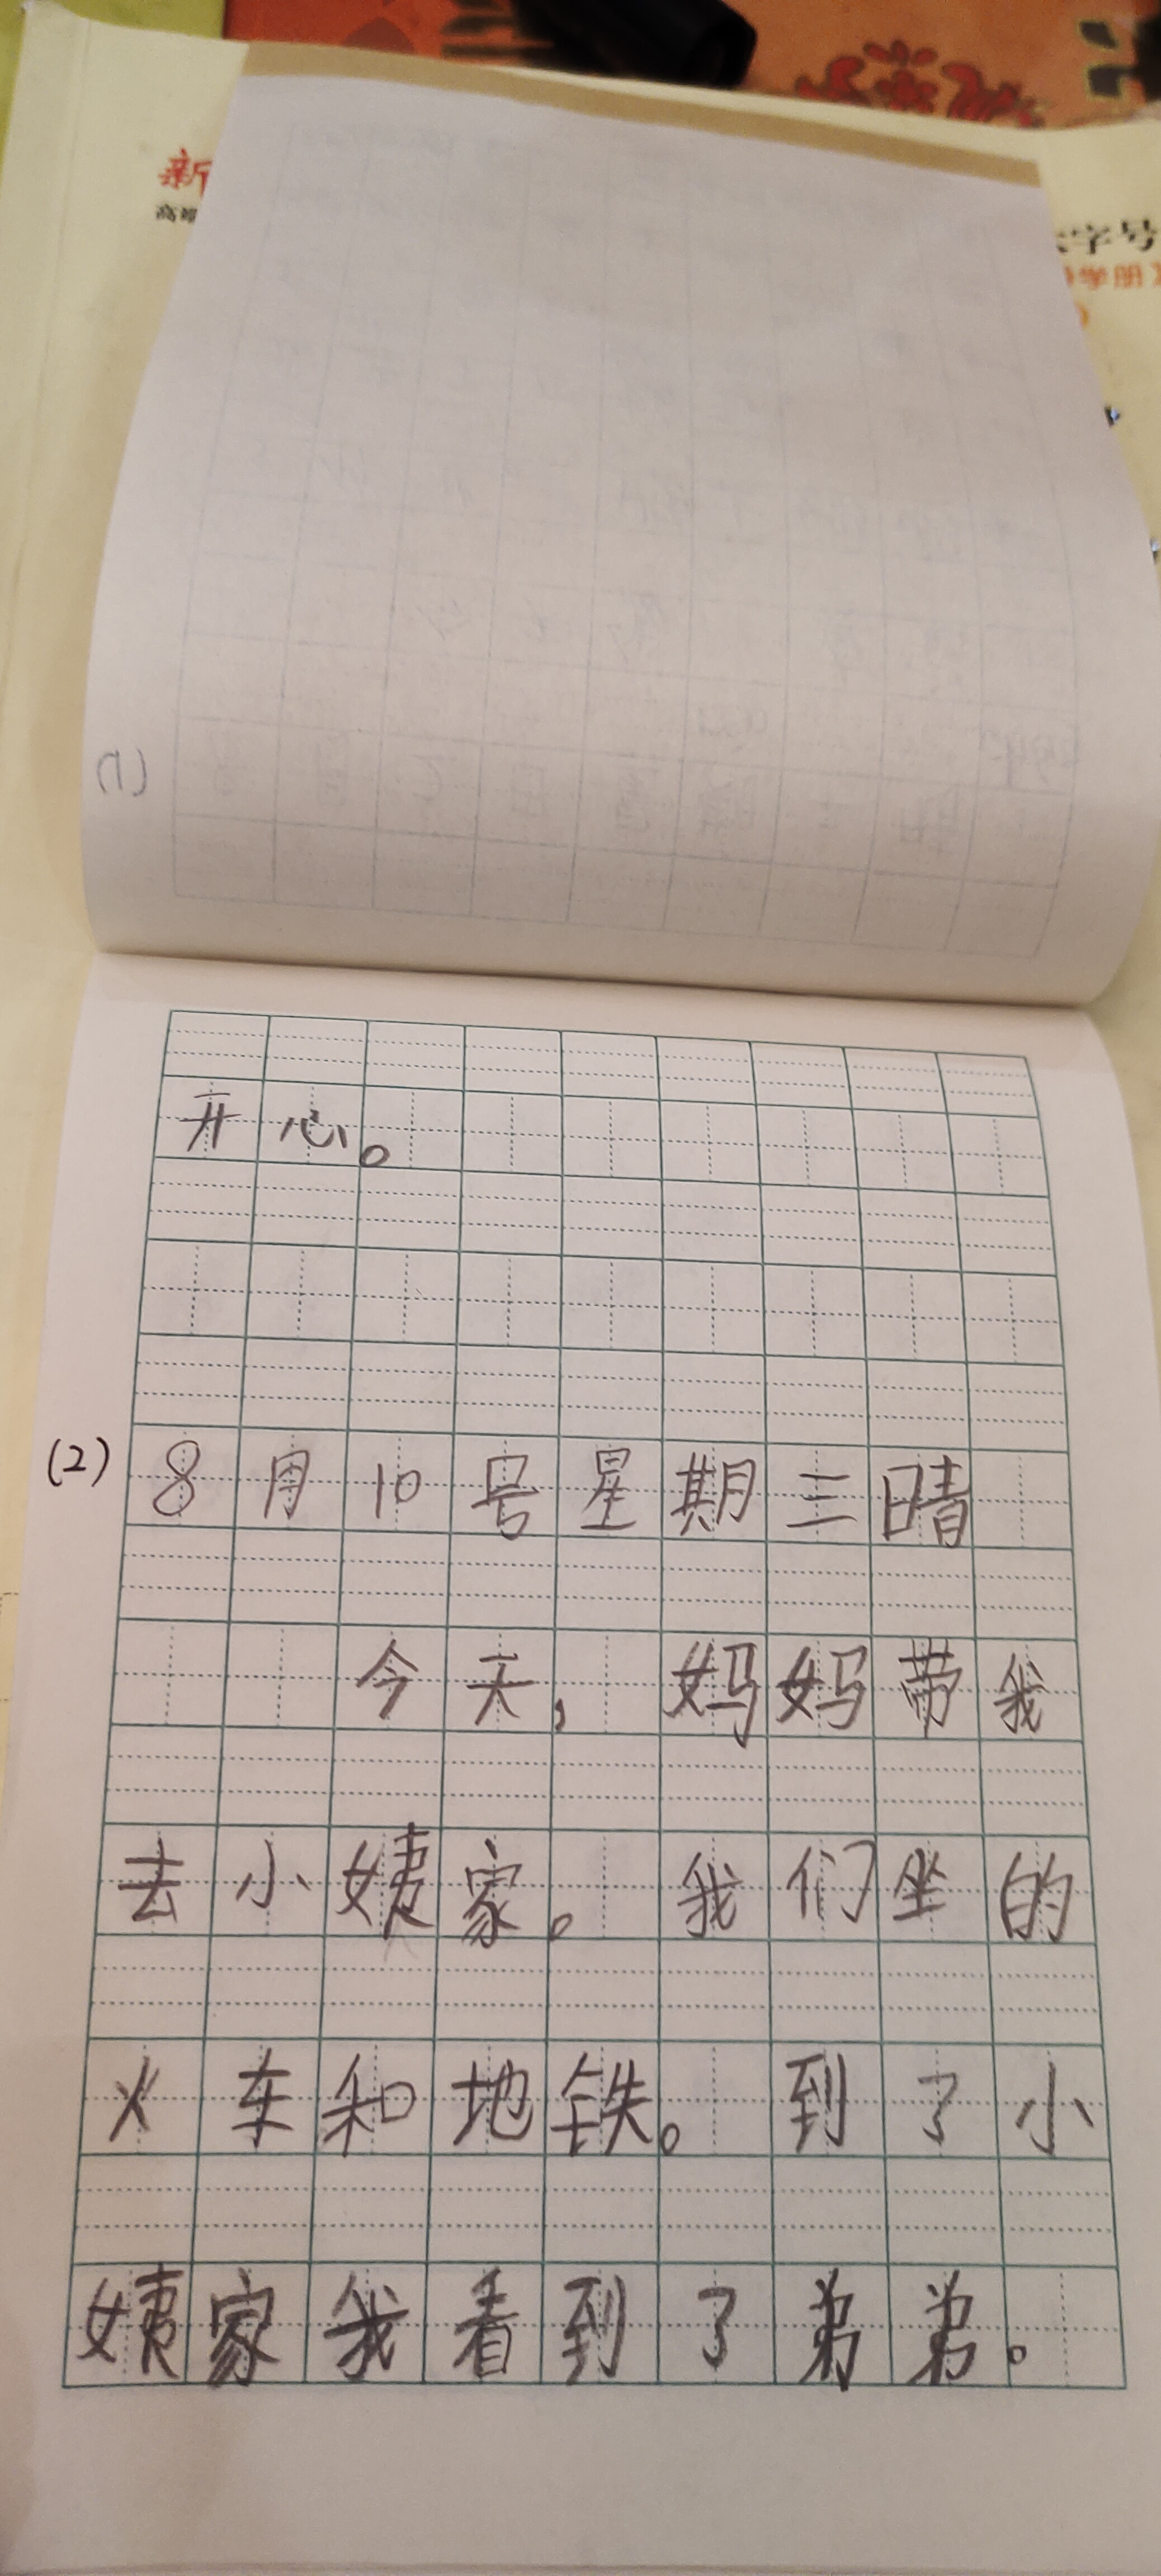 新
字号
学册
(1)
开心。
(2) 8月10号星期三晴
今天，妈妈带我
去小姨家。我们坐的
火车和地铁。到了小
姨家我看到了弟弟。